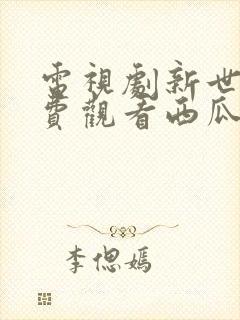 電視劇新世
費觀看西瓜
李偲嫣